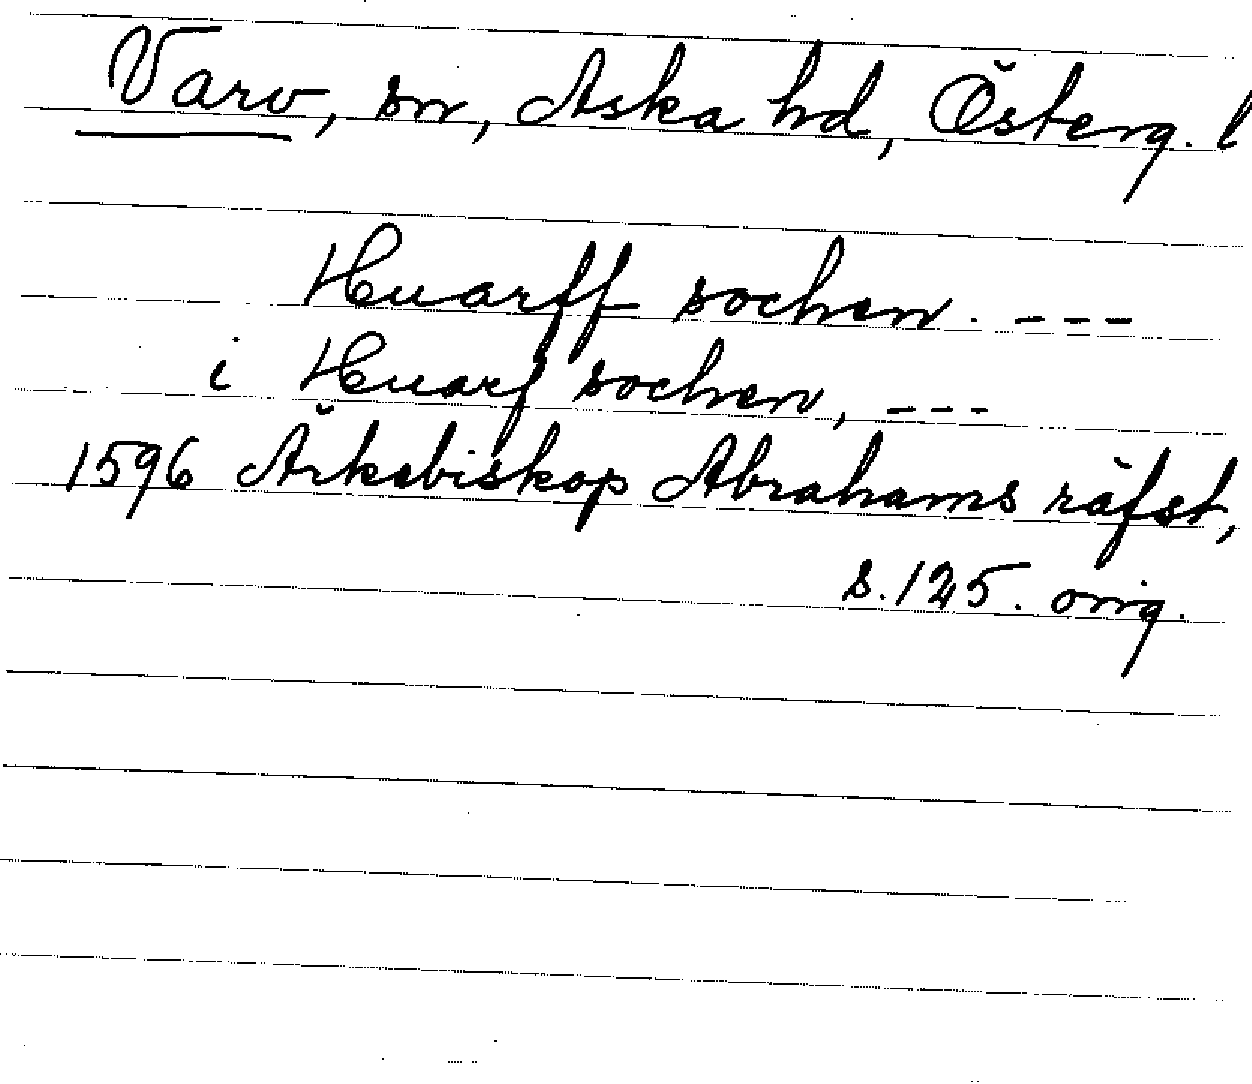 Varv, sn, Aska hd, Österg. l
Huarff sochen. ---
i Huarf sochen, ---
1596 Ärkebiskop Abrahams räfst,
s. 125. orig.